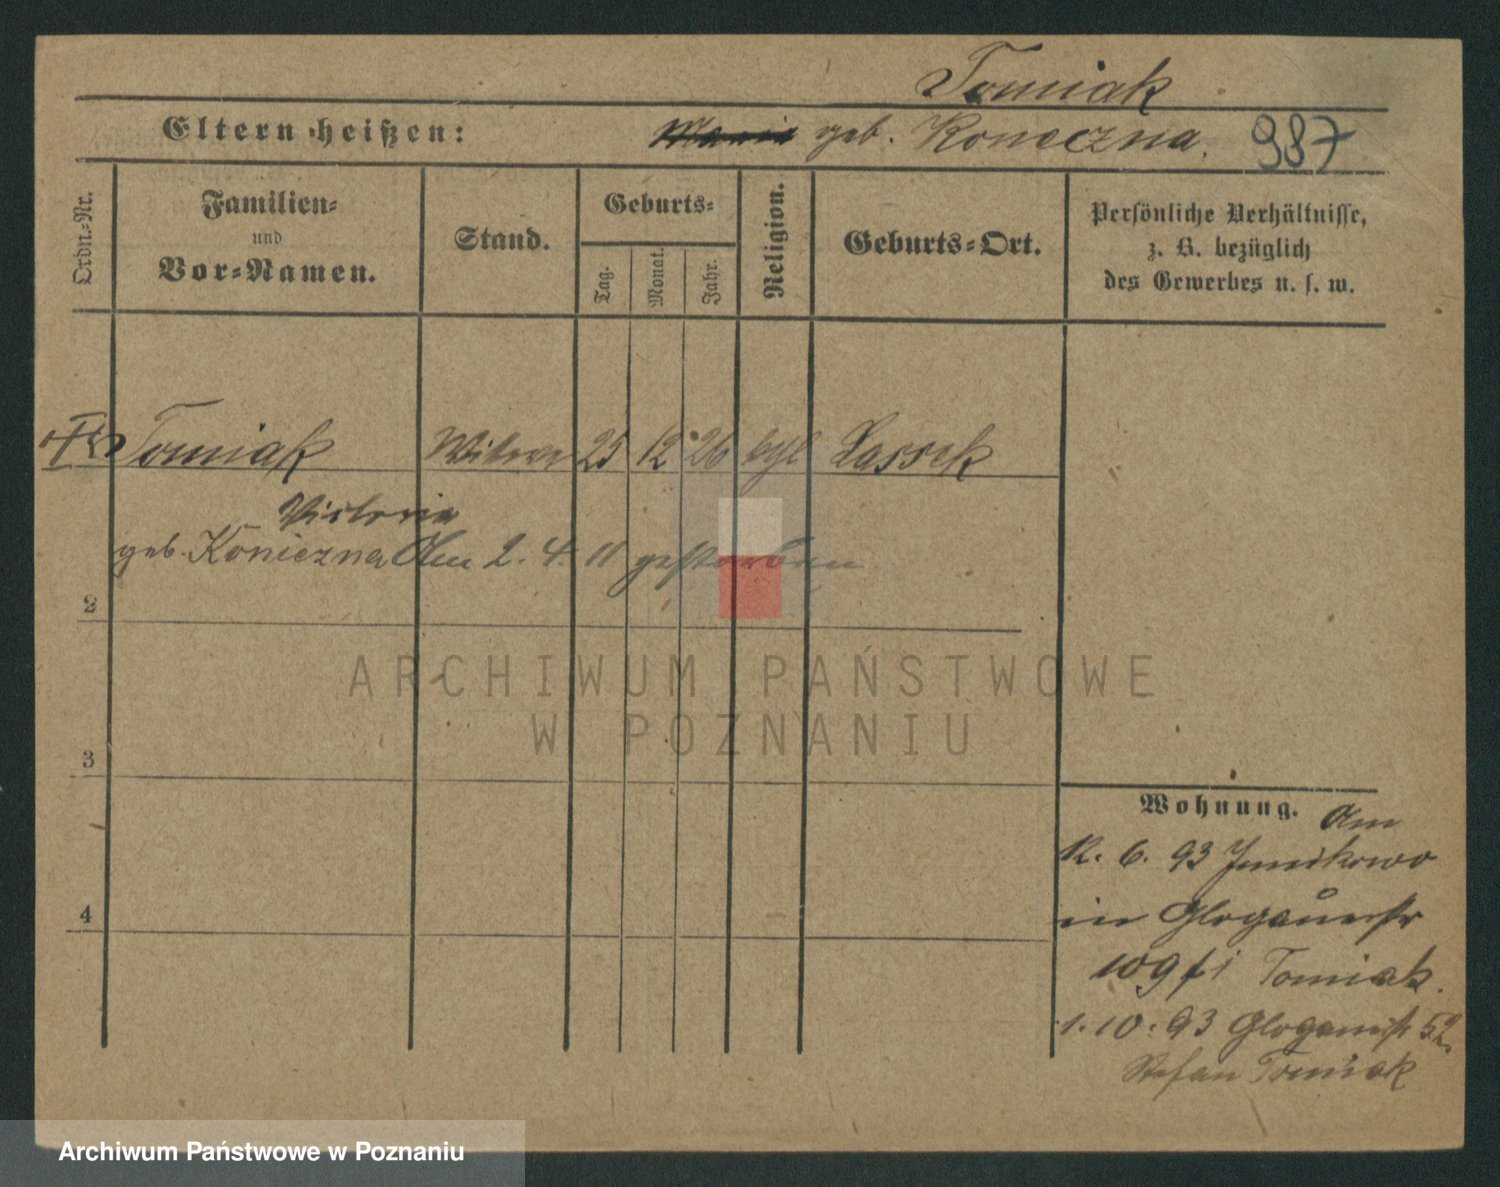 Tomiak
Eltern heißen: Maria geb. Koneczna. 987
Ordn.=Nr.
Familien=
und
Vor=Namen.
Stand.
Geburts=
Tag.
Monat.
Jahr.
Religion.
Geburts=Ort.
Persönliche Verhältnisse,
z. B. bezüglich
des Gewerbes u. s. w.
Tomiak Witwe 25 12 26 kgl Lassek
Victoria
geb. Konieczna Am 2. 4. 11 gestorben
2
3
4
Wohnung. Am
12. 6. 93 Junikowo
in Glogauerstr
109 f i Tomiak.
1. 10. 93 Glogauerstr 52.
Stefan Tomiak
ARCHIWUM PAŃSTWOWE
W POZNANIU
Archiwum Państwowe w Poznaniu